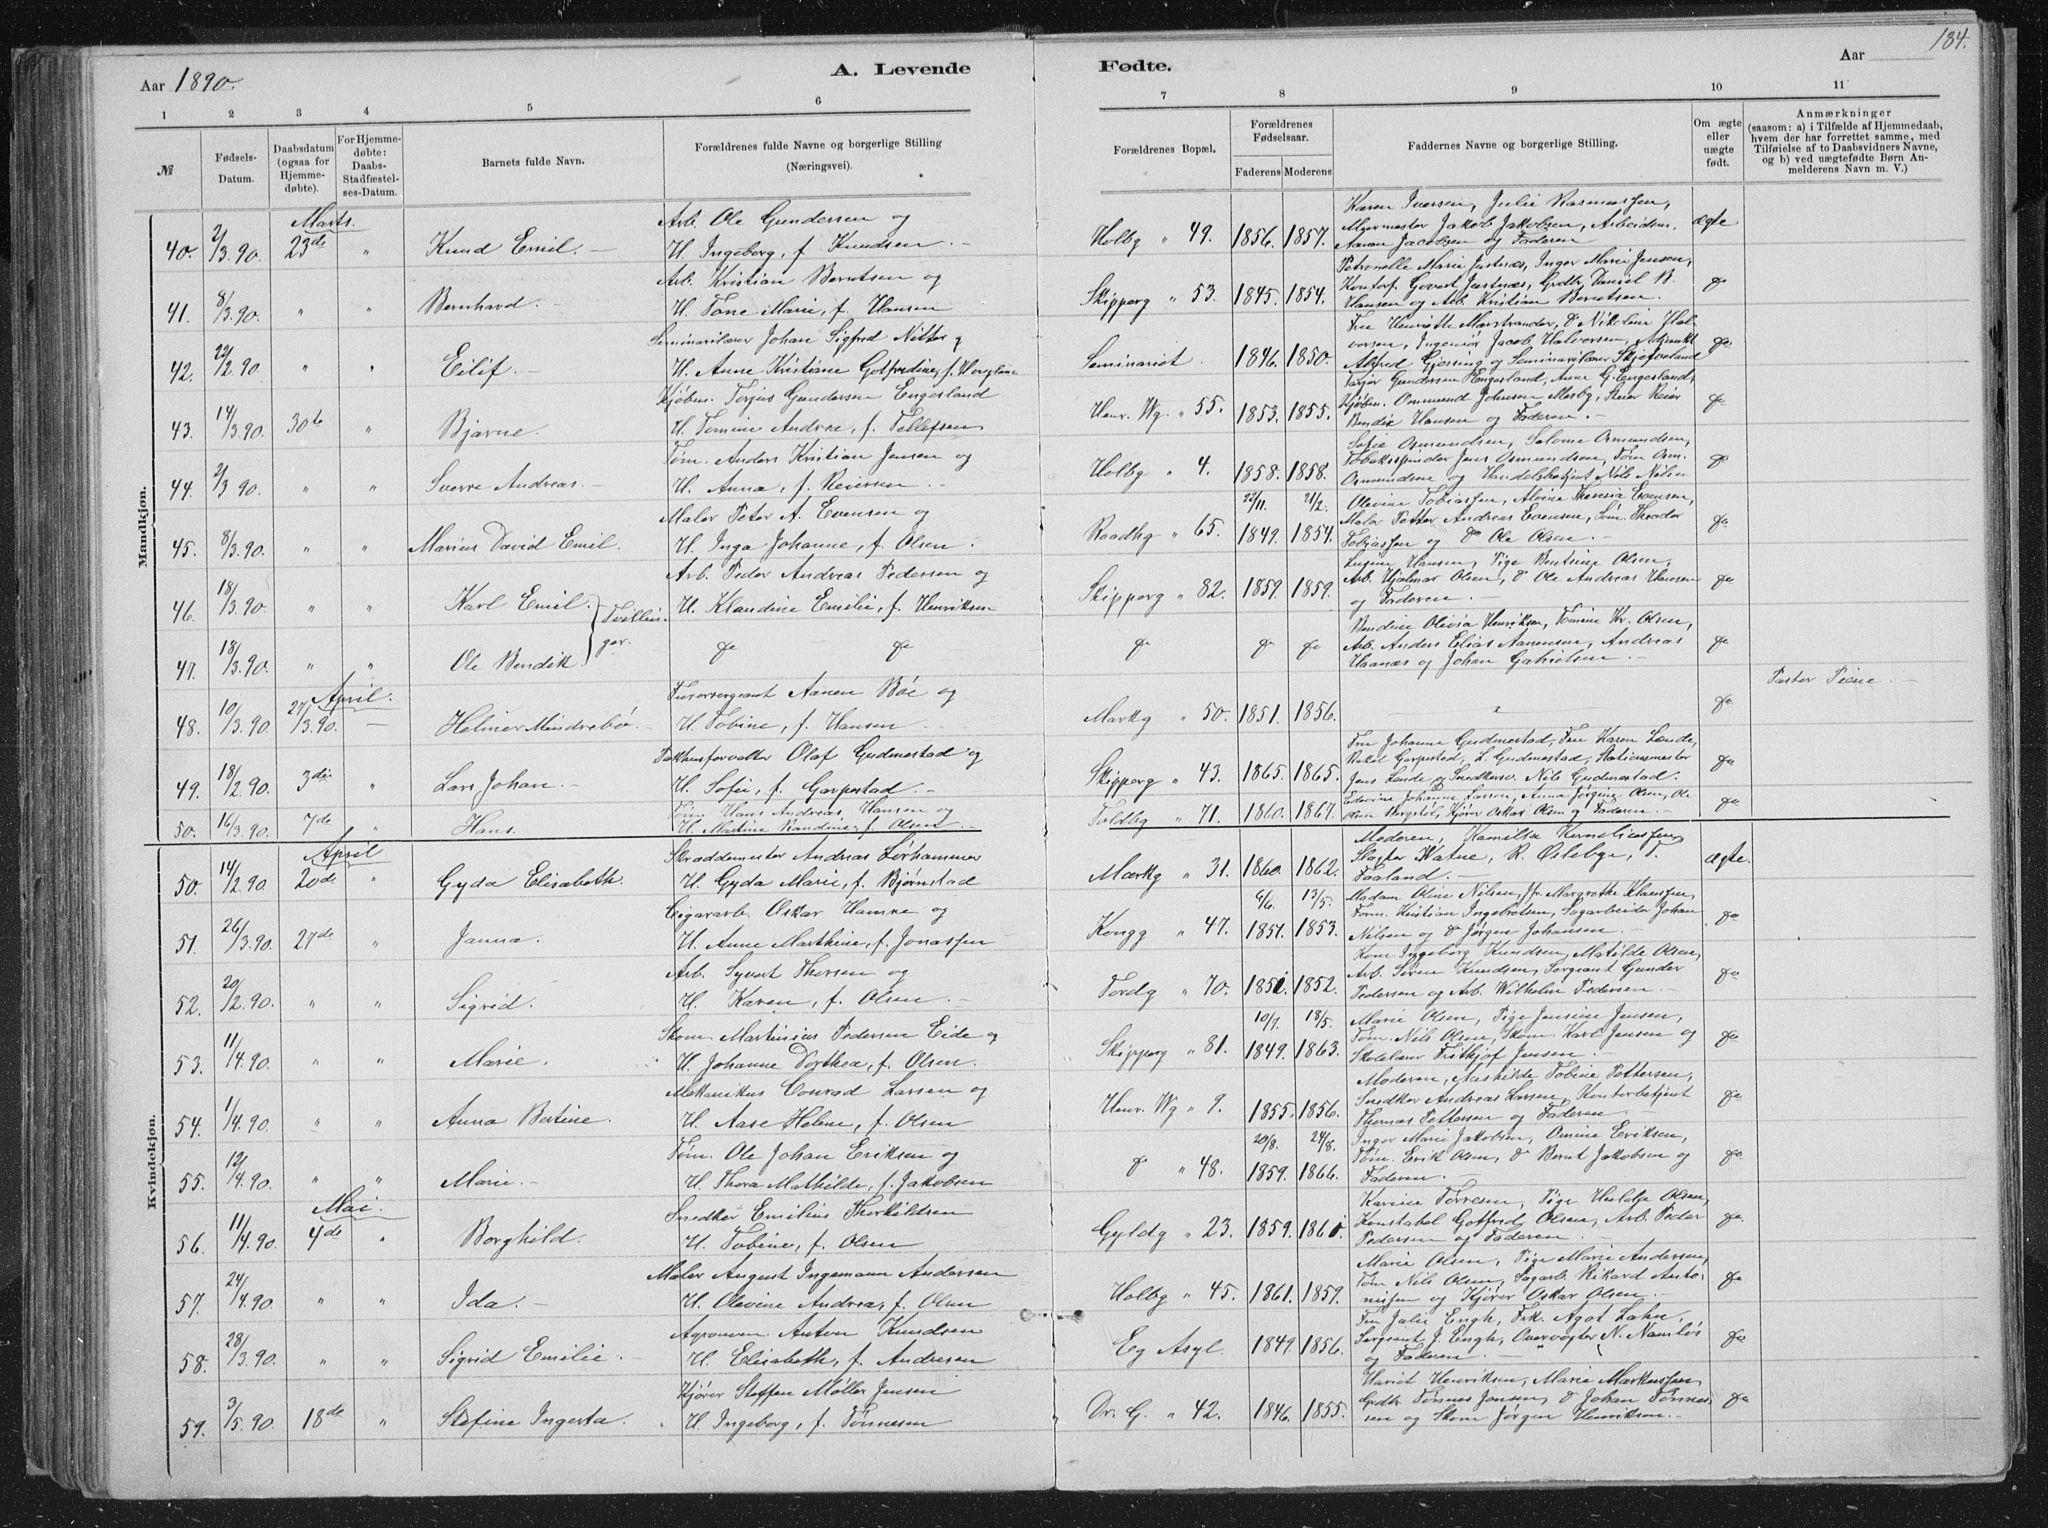 184.
Aar 1890.
A. Levende
Fødte.
Aar
1 2 3 4 5 6 7 8 9 10 11
№
Fødsels-Datum.
Daabsdatum (ogsaa for Hjemmedøbte).
For Hjemmedøbte: Daabs-Stadfæstelses-Datum.
Barnets fulde Navn.
Forældrenes fulde Navne og borgerlige Stilling (Næringsvei).
Forældrenes Bopæl.
Forældrenes Fødselsaar.
Faderens Moderens
Faddernes Navne og borgerlige Stilling.
Om ægte eller uægte født.
Anmærkninger (saasom: a) i Tilfælde af Hjemmedaab, hvem der har forrettet samme, med Tilføielse af to Daabsvidners Navne, og b) ved uægtefødte Børn Anmelderens Navn m. V.)
Mandkjøn.
Marts.
Arb. Ole Gundersen og
Karen Iversen, Julie Rasmussen,
40. 2/3.90. 23de " Knud Emil. H. Ingeborg, f Knudsen. Holbg " 49. 1856. 1857. Murmester Jakob Jakobsen, Arbeidsm. ægte
Aanon Jacobsen og Faderen
Arb. Kristian Berntsen og
Petronelle Marie Justnæs, Inger Marie Jensen,
41. 8/3.90. " " Bernhard. H. Tone Marie, f. Hansen Skipperg " 53. 1845. 1854. Kontorf. Govert Justnæs, Grdbr Daniel B. do
Hansen og Arb. Kristian Berntsen.
Seminarilærer Johan Sigfred Nitter og
Fru Henriette Marstrander, do Nikoline Hal-
42. 22/2.90. " " Eilif. H. Anne Kristiane Gotfredine, f. Seminariet. 1846. 1850. vorsen, Ingeniør Jacob Halvorsen, Adjunkt do
Alfred Gjessing og Seminarilærer Skjefveland
Kjøbm. Torjus Gundersen Engesland
Tarjer Gundersen Engesland, Anne G. Engesland,
43. 14/3.90. 30te " Bjarne. H. Tomine Andrea, f. Tellefsen Henr. Wg. " 55. 1853. 1855. Kjøbm. Ommund Johnsen Mosby, do
Bendix Hansen og Faderen.
Tøm. Anders Kristian Jensen og
Sofie Osmundsen, Salome Osmundsen,
44. 2/3 90. " " Sverre Andreas. H. Anna, f. Reiersen. Holbg " 4. 1858. 1858. Tobaksspinder Jens Osmundsen, Tøm Osm. do
Osmundsen og Handelsbetjent Nils Nilsen
Maler Peter A. Evensen og
22/11. 21/2. Olevine Tobiassen, Alvine Theresia Evensen,
45. 8/3.90. " " Marius David Emil. H. Inga Johanne, f. Olsen. Raadhg " 65. 1849. 1854. Maler Petter Andreas Evensen, Søm. Theodor do
Tobiassen og do Ole Olsen.
Arb. Peder Andreas Pedersen og
Hansen, Pige Bentine Olsen,
46. 18/3.90. " " Karl Emil. H. Klaudine Emilie, f. Henriksen Skipperg " 82. 1859. 1859. Arb. Hjalmar Olsen, do Ole Andreas Hansen do
og Faderen.
Tvillinger.
Bendine Olivia Henriksen, Tomine Kr. Olsen,
47. 18/3.90. " " Ole Bendik. do do do do do Arb. Anders Elias Aanensen, Andreas do
Haanæs og Johan Gabrielsen.
April.
Furersergeant Aanen Bøe og
Pastor Piene.
48. 10/3.90. 27/3.90. — Helmer Mindrebø. H. Tobine, f. Hansen. Markg " 50. 1851. 1856. " do
Pakhusforvalter Olaf Gudmestad og
Fru Johanne Gudmestad, Fru Karen Lunde,
49. 18/2.90. 3die " Lars Johan. H. Sofie, f. Garpestad. Skipperg " 43. 1865. 1865. Rakel Garpestad, L. Gudmestad, Stationsmester do
Jens Lunde og Snedkersv. Nils Gudmestad.
Tøm Hans Andreas Hansen og
Edevine Johanne Larsen, Anna Jørgine Olsen, Ole
50. 16/3.90. 7de " Hans. H. Martine Randine, f. Olsen. Toldbg " 71. 1860. 1867. Olsen, Kjører Oskar Olsen og Faderen. do
Kvindekjøn.
April
Skræddemester Andreas Lørhammer
Moderen, Kamilla Korneliussen
50. 14/2.90. 20de " Gyda Elisabeth. H. Gyda Marie, f. Bjørnstad Markg " 31. 1860. 1862. Slagter Watne, R. Osleby, T. ægte.
Faaland.
Cigararb. Oskar Hamre og
6/6. 13/5. Madam Oline Nilsen, Margrethe Klausen,
51. 26/3.90. 27de " Janna. H. Anne Marthine, f. Jonassen Kongg " 47. 1851. 1853. Tøm. Kristian Ingebretsen, Sagarbeider Johan do
Nilsen og do Jørgen Johansen.
Arb. Syvert Thorsen og
Kone Ingeborg Knudsen, Matilde Olsen,
52. 20/2.90. " " Sigrid. H. Karen, f. Olsen. Tordg " 70. 1851. 1852. Arb. Søren Knudsen, Sergeant Gunder do
Pedersen og Arb. Wilhelm Pedersen.
Skom. Martinius Pedersen Eide og
10/7. 18/5. Marie Olsen, Pige Jensine Jensen,
53. 11/4.90. " " Marie. H. Johanne Dorthea, f. Olsen. Skipperg " 81. 1849. 1863. Tøm. Nils Olsen, Skom. Karl Jensen og do
Skolelærer Fritkjof Jensen.
Mekanikus Conrad Larsen og
Moderen, Mathilde Tobine Pettersen,
54. 1/4.90. " " Anna Bertine. H. Aase Helene, f. Olsen Henr. Wg " 9. 1855. 1856. Snedker Andreas Larsen, Kontorbetjent do
Thomas Pettersen og Faderen.
Tøm. Ole Johan Eriksen og
20/8. 24/8. Inger Marie Jakobsen, Omine Eriksen,
55. 12/4.90. " " Marie. H. Thora Mathilde, f. Jakobsen do " 48. 1859. 1866. Tøm. Erik Olsen, do Bernt Jakobsen og do
Faderen.
Mai.
Snedker Emilius Thorkildsen
Karine Torresen, Pige Hulda Olsen,
56. 11/4.90. 4de " Borghild. H. Tobine, f. Olsen Gyldg " 23. 1859. 1860. Konstabel Gotfred Olsen, Arb. Peder do
Pedersen og Faderen.
Maler August Ingemann Andersen
Marie Olsen, Pige Marie Andersen,
57. 24/4.90. " " Ida. H. Olevine Andrea, f. Olsen Holbg " 45. 1861. 1859. Tøm Nils Olsen, Sagarb. Rikard Anto- do
niusen og Kjører Oskar Olsen.
Agronom. Anton Knudsen
Fru Julie Engh, Frk. Agot Lahn,
58. 28/3.90. " " Sigrid Emilie. H. Elisabeth, f. Andresen Eg Asyl. 1849. 1856. Sergeant J. Engh, Overvogter N. Namløs do
og Faderen.
Kjører Steffen Møller Jensen
Hariet Henriksen, Marie Markussen,
59. 3/5.90. 18de " Stefine Ingerta. H. Ingeborg, f. Tønnesen Dr. G. " 42. 1846. 1855. Grdbr. Tønnes Jensen, do Johan Tønnes- do
sen og Skom Jørgen Henriksen.